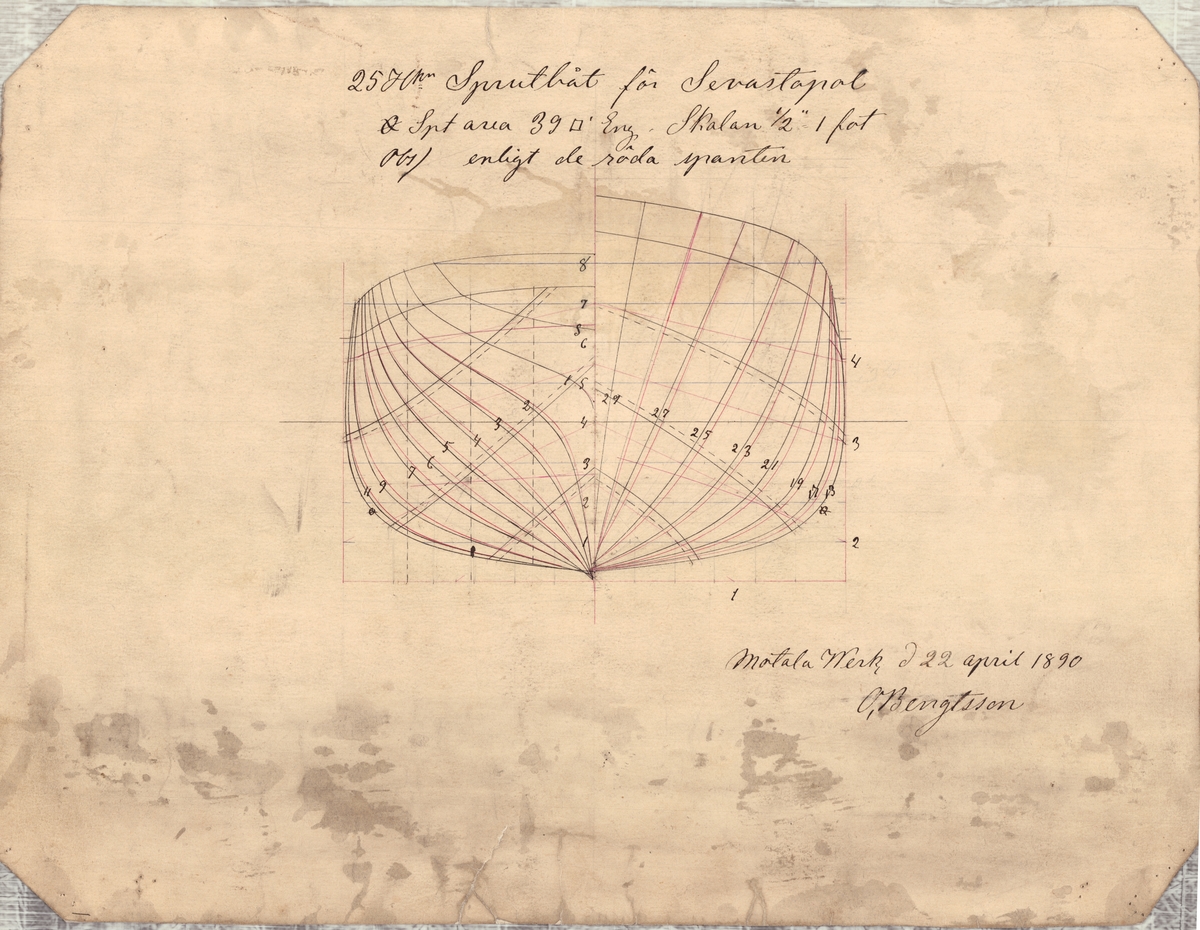 257 Hkn Sprutbåt för Sevastopol
Spt area 39 □' Eng. Skalan 1/2" = 1 fot
Obs) enligt de röda spanten
8
7
8
6
4
1 5 29
2 27
4
3 25 3
5 4 23
6 3 21
7
9 19
11 2 17 13
1 2
1
Motala Werk d 22 april 1890
O, Bengtsson